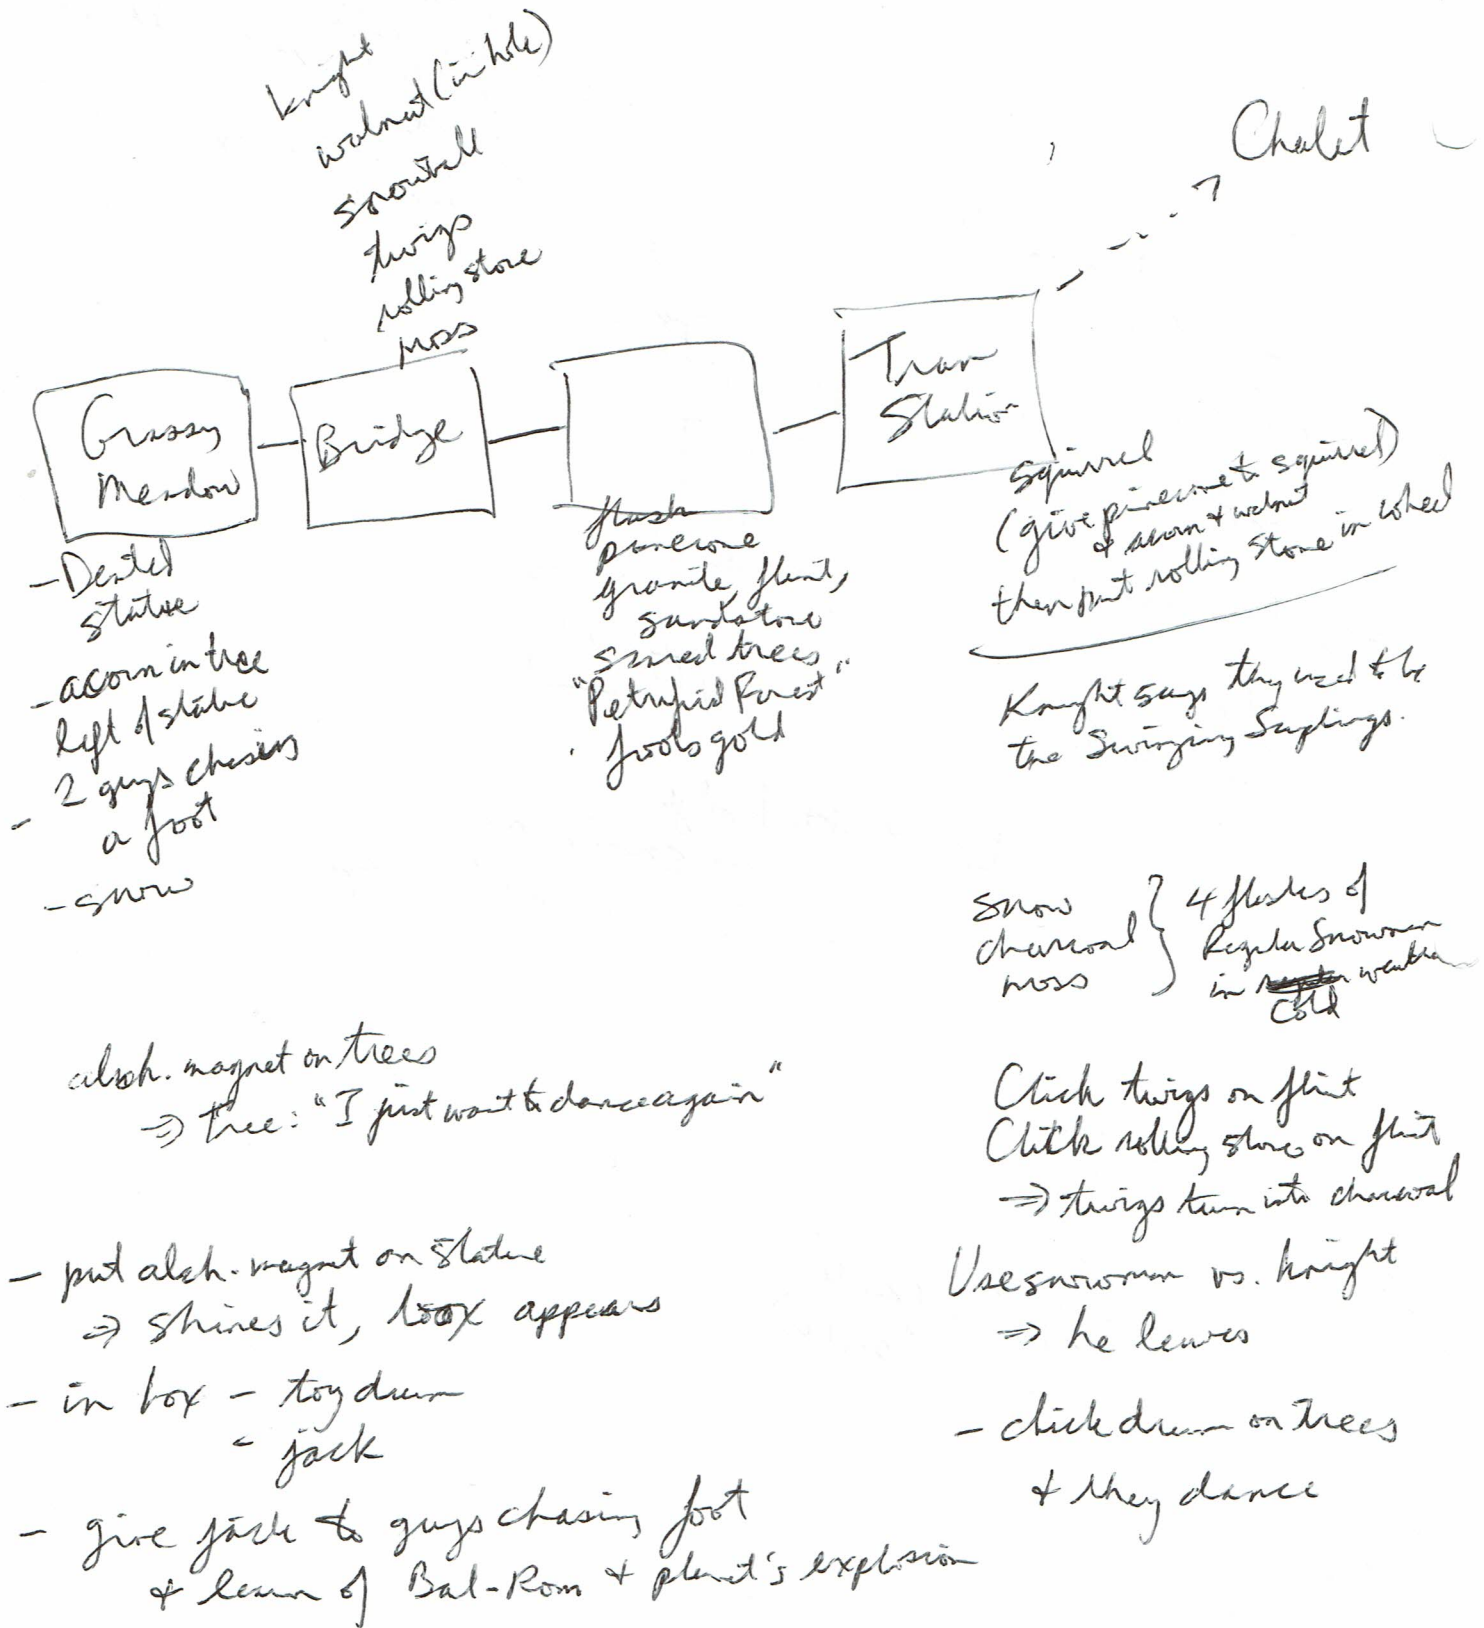 knight
walnut (in hole)
snowball
twigs
rolling stone
moss
Chalet
Grassy
Meadow
Bridge
Tram
Station
- Dented
statue
- acorn in tree
left of statue
- 2 guys chasing
a foot
- snow
flask
pinecone
granite, flint,
sandstone
scared trees
"Petrified Forest"
fools gold
squirrel
(give pinecone to squirrel)
& acorn & walnut
then put rolling stone in wheel
Knight says they used to be
the Swinging Saplings.
snow
charcoal
moss
4 flasks of
Regular Snowman
in weather
cold
alch. magnet on trees
⇒ tree: "I just want to dance again"
Click twigs on flint
Click rolling stone on flint
⇒ twigs turn into charcoal
- put alch. magnet on statue
⇒ shines it, box appears
Use snowman vs. knight
⇒ he leaves
- in box - toy drum
- jack
- click drum on trees
& they dance
- give jack to guys chasing foot
& learn of Bal-Rom & planet's explosion